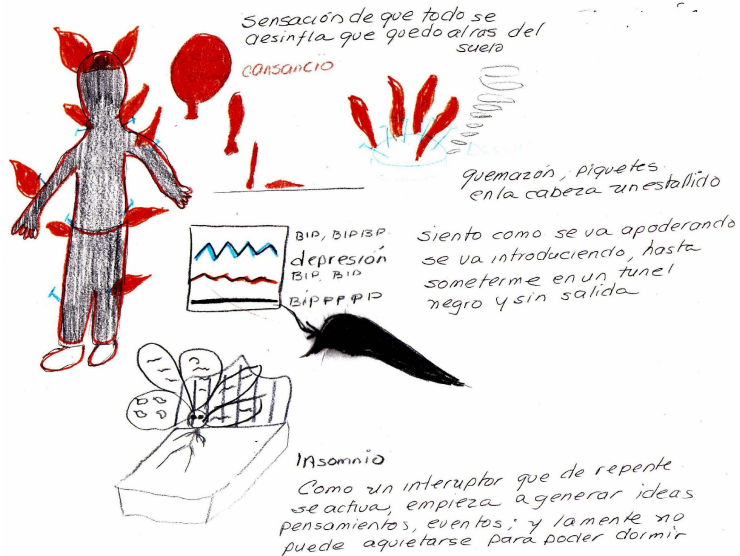 sensación de que todo se
desinfla que quedo al ras del
suelo
cansancio
quemazón, piquetes
en la cabeza un estallido
BIP, BIPBP.
depresión
BIP, BIP
BIPPPPP
siento como se va apoderando
se va introduciendo, hasta
someterme en un tunel
negro y sin salida
Insomnio
Como un interuptor que de repente
se activa, empieza a generar ideas
pensamientos, eventos; y la mente no
puede aquietarse para poder dormir